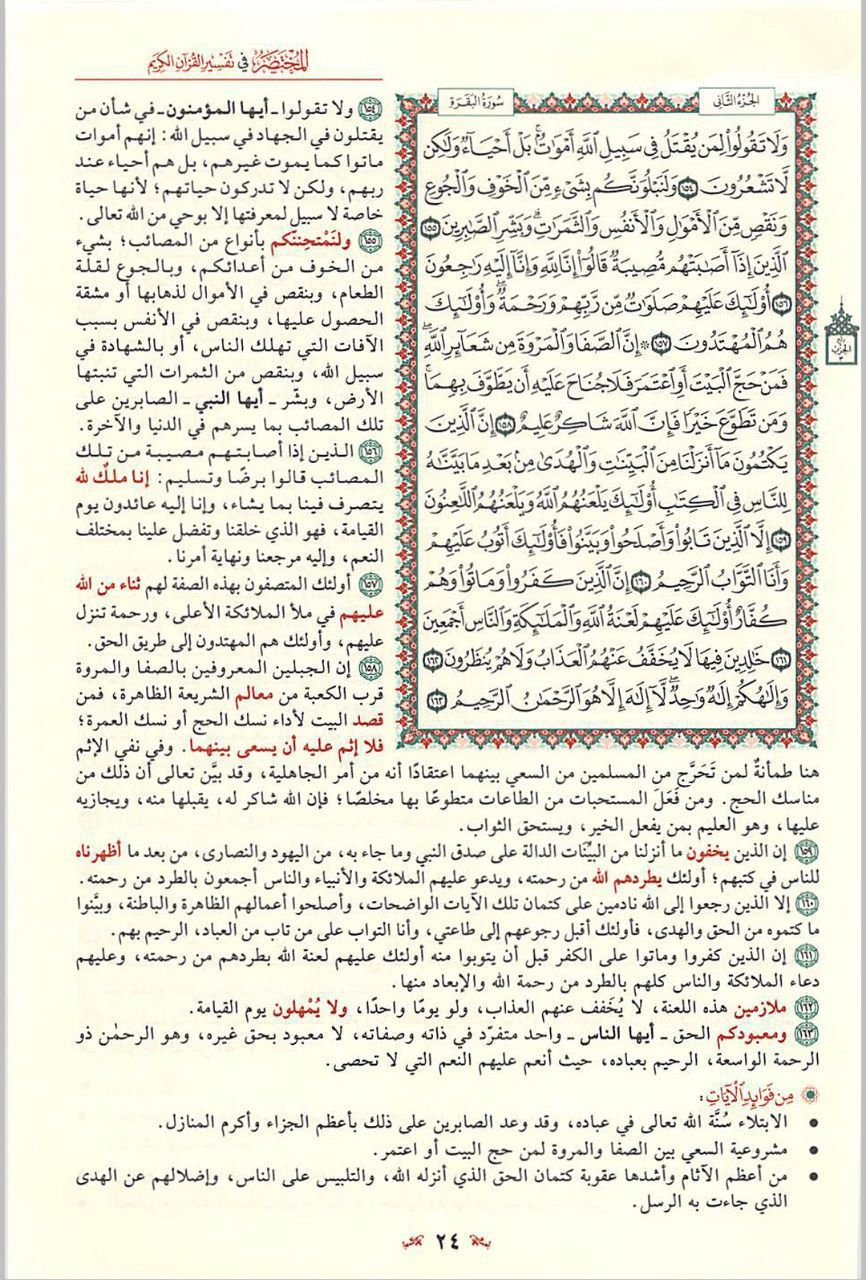 المختصر في تفسير القرآن الكريم
الجزء الثاني
سورة البقرة
وَلَا تَقُولُوا۟ لِمَن يُقْتَلُ فِى سَبِيلِ ٱللَّهِ أَمْوَٰتٌۢ ۚ بَلْ أَحْيَآءٌ وَلَٰكِن
لَّا تَشْعُرُونَ ١٥٤ وَلَنَبْلُوَنَّكُم بِشَىْءٍ مِّنَ ٱلْخَوْفِ وَٱلْجُوعِ
وَنَقْصٍ مِّنَ ٱلْأَمْوَٰلِ وَٱلْأَنفُسِ وَٱلثَّمَرَٰتِ ۗ وَبَشِّرِ ٱلصَّٰبِرِينَ ١٥٥
ٱلَّذِينَ إِذَآ أَصَٰبَتْهُم مُّصِيبَةٌ قَالُوٓا۟ إِنَّا لِلَّهِ وَإِنَّآ إِلَيْهِ رَٰجِعُونَ
١٥٦ أُو۟لَٰٓئِكَ عَلَيْهِمْ صَلَوَٰتٌ مِّن رَّبِّهِمْ وَرَحْمَةٌ ۖ وَأُو۟لَٰٓئِكَ
هُمُ ٱلْمُهْتَدُونَ ١٥٧ ۞ إِنَّ ٱلصَّفَا وَٱلْمَرْوَةَ مِن شَعَآئِرِ ٱللَّهِ ۖ
فَمَنْ حَجَّ ٱلْبَيْتَ أَوِ ٱعْتَمَرَ فَلَا جُنَاحَ عَلَيْهِ أَن يَطَّوَّفَ بِهِمَا ۚ
وَمَن تَطَوَّعَ خَيْرًا فَإِنَّ ٱللَّهَ شَاكِرٌ عَلِيمٌ ١٥٨ إِنَّ ٱلَّذِينَ
يَكْتُمُونَ مَآ أَنزَلْنَا مِنَ ٱلْبَيِّنَٰتِ وَٱلْهُدَىٰ مِنۢ بَعْدِ مَا بَيَّنَّٰهُ
لِلنَّاسِ فِى ٱلْكِتَٰبِ ۙ أُو۟لَٰٓئِكَ يَلْعَنُهُمُ ٱللَّهُ وَيَلْعَنُهُمُ ٱللَّٰعِنُونَ
١٥٩ إِلَّا ٱلَّذِينَ تَابُوا۟ وَأَصْلَحُوا۟ وَبَيَّنُوا۟ فَأُو۟لَٰٓئِكَ أَتُوبُ عَلَيْهِمْ ۚ
وَأَنَا ٱلتَّوَّابُ ٱلرَّحِيمُ ١٦٠ إِنَّ ٱلَّذِينَ كَفَرُوا۟ وَمَاتُوا۟ وَهُمْ
كُفَّارٌ أُو۟لَٰٓئِكَ عَلَيْهِمْ لَعْنَةُ ٱللَّهِ وَٱلْمَلَٰٓئِكَةِ وَٱلنَّاسِ أَجْمَعِينَ
١٦١ خَٰلِدِينَ فِيهَا ۖ لَا يُخَفَّفُ عَنْهُمُ ٱلْعَذَابُ وَلَا هُمْ يُنظَرُونَ ١٦٢
وَإِلَٰهُكُمْ إِلَٰهٌ وَٰحِدٌ ۖ لَّآ إِلَٰهَ إِلَّا هُوَ ٱلرَّحْمَٰنُ ٱلرَّحِيمُ ١٦٣
١٥٤ ولا تقولوا ـ أيها المؤمنون ـ في شأن من
يقتلون في الجهاد في سبيل الله: إنهم أموات
ماتوا كما يموت غيرهم، بل هم أحياء عند
ربهم، ولكن لا تدركون حياتهم؛ لأنها حياة
خاصة لا سبيل لمعرفتها إلا بوحي من الله تعالى.
١٥٥ ولنَمْتحِننّكم بأنواع من المصائب؛ بشيء
من الخوف من أعدائكم، وبالجوع لقلة
الطعام، وبنقص في الأموال لذهابها أو مشقة
الحصول عليها، وبنقص في الأنفس بسبب
الآفات التي تهلك الناس، أو بالشهادة في
سبيل الله، وبنقص من الثمرات التي تنبتها
الأرض، وبشّر ـ أيها النبي ـ الصابرين على
تلك المصائب بما يسرهم في الدنيا والآخرة.
١٥٦ الذين إذا أصابتهم مصيبة من تلك
المصائب قالوا برضًا وتسليم: إنا ملكٌ لله
يتصرف فينا بما يشاء، وإنا إليه عائدون يوم
القيامة، فهو الذي خلقنا وتفضل علينا بمختلف
النعم، وإليه مرجعنا ونهاية أمرنا.
١٥٧ أولئك المتصفون بهذه الصفة لهم ثناء من الله
عليهم في ملأ الملائكة الأعلى، ورحمة تنزل
عليهم، وأولئك هم المهتدون إلى طريق الحق.
١٥٨ إن الجبلين المعروفين بالصفا والمروة
قرب الكعبة من معالم الشريعة الظاهرة، فمن
قصد البيت لأداء نسك الحج أو نسك العمرة؛
فلا إثم عليه أن يسعى بينهما. وفي نفي الإثم
هنا طمأنةٌ لمن تَحَرَّج من المسلمين من السعي بينهما اعتقادًا أنه من أمر الجاهلية، وقد بيَّن تعالى أن ذلك من
مناسك الحج. ومن فَعَلَ المستحبات من الطاعات متطوعًا بها مخلصًا؛ فإن الله شاكر له، يقبلها منه، ويجازيه
عليها، وهو العليم بمن يفعل الخير، ويستحق الثواب.
١٥٩ إن الذين يخفون ما أنزلنا من البيِّنات الدالة على صدق النبي وما جاء به، من اليهود والنصارى، من بعد ما أظهرناه
للناس في كتبهم؛ أولئك يطردهم الله من رحمته، ويدعو عليهم الملائكة والأنبياء والناس أجمعون بالطرد من رحمته.
١٦٠ إلا الذين رجعوا إلى الله نادمين على كتمان تلك الآيات الواضحات، وأصلحوا أعمالهم الظاهرة والباطنة، وبيَّنوا
ما كتموه من الحق والهدى، فأولئك أقبل رجوعهم إلى طاعتي، وأنا التواب على من تاب من العباد، الرحيم بهم.
١٦١ إن الذين كفروا وماتوا على الكفر قبل أن يتوبوا منه أولئك عليهم لعنة الله بطردهم من رحمته، وعليهم
دعاء الملائكة والناس كلهم بالطرد من رحمة الله والإبعاد منها.
١٦٢ ملازمين هذه اللعنة، لا يُخَفف عنهم العذاب، ولو يومًا واحدًا، ولا يُمْهلون يوم القيامة.
١٦٣ ومعبودكم الحق ـ أيها الناس ـ واحد متفرّد في ذاته وصفاته، لا معبود بحق غيره، وهو الرحمٰن ذو
الرحمة الواسعة، الرحيم بعباده، حيث أنعم عليهم النعم التي لا تحصى.
من فوائد الآيات:
• الابتلاء سُنَّة الله تعالى في عباده، وقد وعد الصابرين على ذلك بأعظم الجزاء وأكرم المنازل.
• مشروعية السعي بين الصفا والمروة لمن حج البيت أو اعتمر.
• من أعظم الآثام وأشدها عقوبة كتمان الحق الذي أنزله الله، والتلبيس على الناس، وإضلالهم عن الهدى
الذي جاءت به الرسل.
٢٤